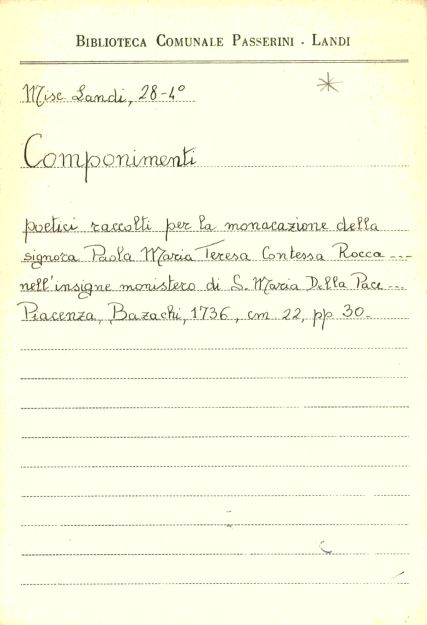 BIBLIOTECA COMUNALE PASSERINI - LANDI
Misc. Landi, 28-4°
Componimenti
poetici raccolti per la monacazione della
signora Paola Maria Teresa Contessa Rocca ...
nell'insigne monistero di S. Maria Della Pace ...
Piacenza, Bazachi, 1736, cm 22, pp 30.